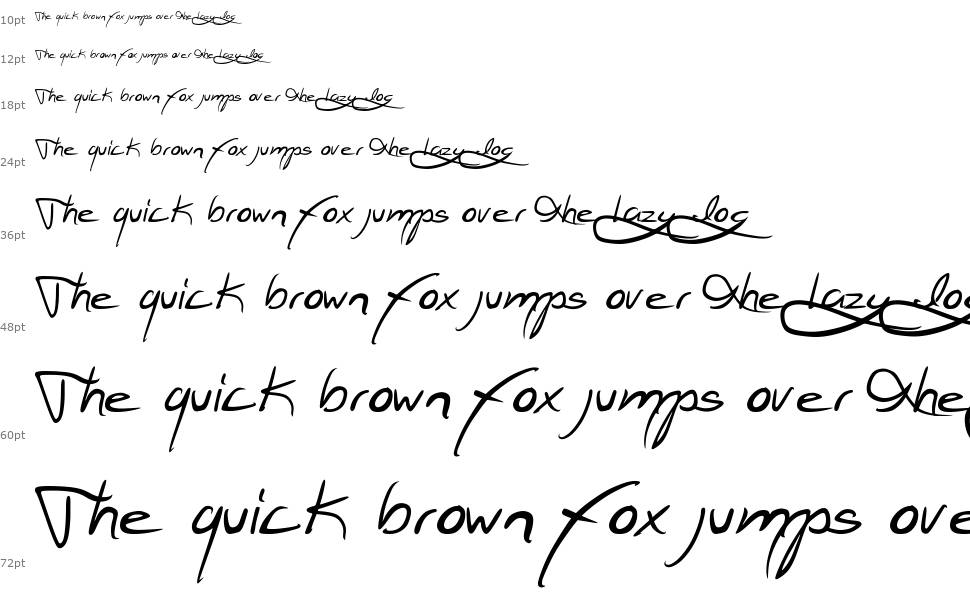 10pt The quick brown fox jumps over the lazy dog
12pt The quick brown fox jumps over the lazy dog
18pt The quick brown fox jumps over the lazy dog
24pt The quick brown fox jumps over the lazy dog
36pt The quick brown fox jumps over the lazy dog
48pt The quick brown fox jumps over the lazy do
60pt The quick brown fox jumps over the
72pt The quick brown fox jumps ove